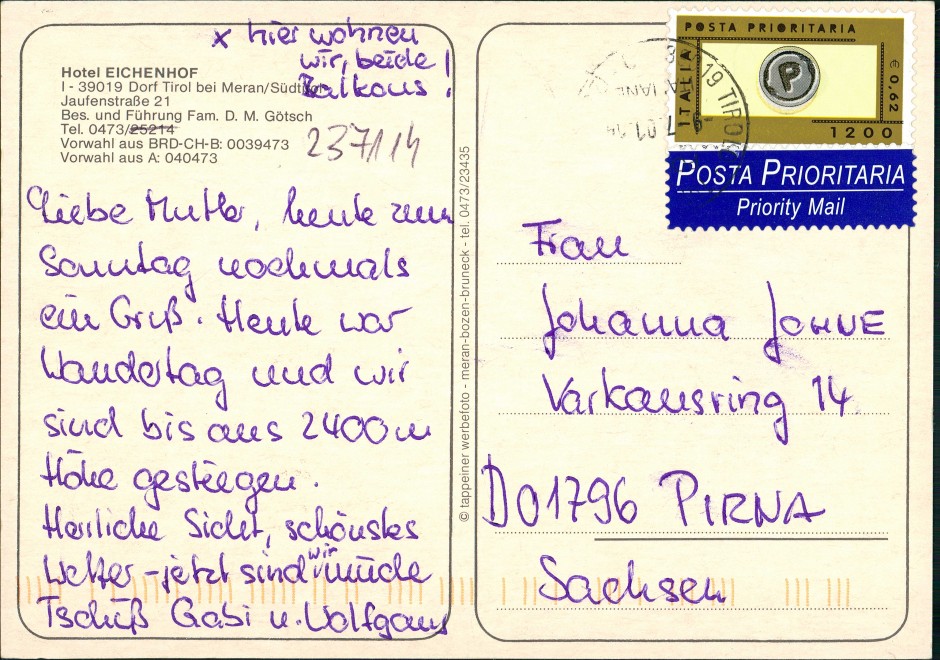 x hier wohnen
wir, beide
Balkons !
Hotel EICHENHOF
I - 39019 Dorf Tirol bei Meran/Südtirol
Jaufenstraße 21
Bes. und Führung Fam. D. M. Götsch
Tel. 0473/25214
Vorwahl aus BRD-CH-B: 0039473
Vorwahl aus A: 040473
237114
Liebe Mutter, heute zum
Sonntag nochmals
ein Gruß. Heute war
Wandertag und wir
sind bis aus 2400 m
Höhe gestiegen.
Herrliche Sicht, schönstes
Wetter - jetzt sind wir müde
Tschüß Gabi u. Wolfgang
© tappeiner werbefoto - meran-bozen-bruneck - tel. 0473/23435
POSTA PRIORITARIA
ITALIA
P
€ 0,62
1200
19 TIROL
POSTA PRIORITARIA
Priority Mail
Frau
Johanna JOHNE
Varkausring 14
D01796 PIRNA
Sachsen